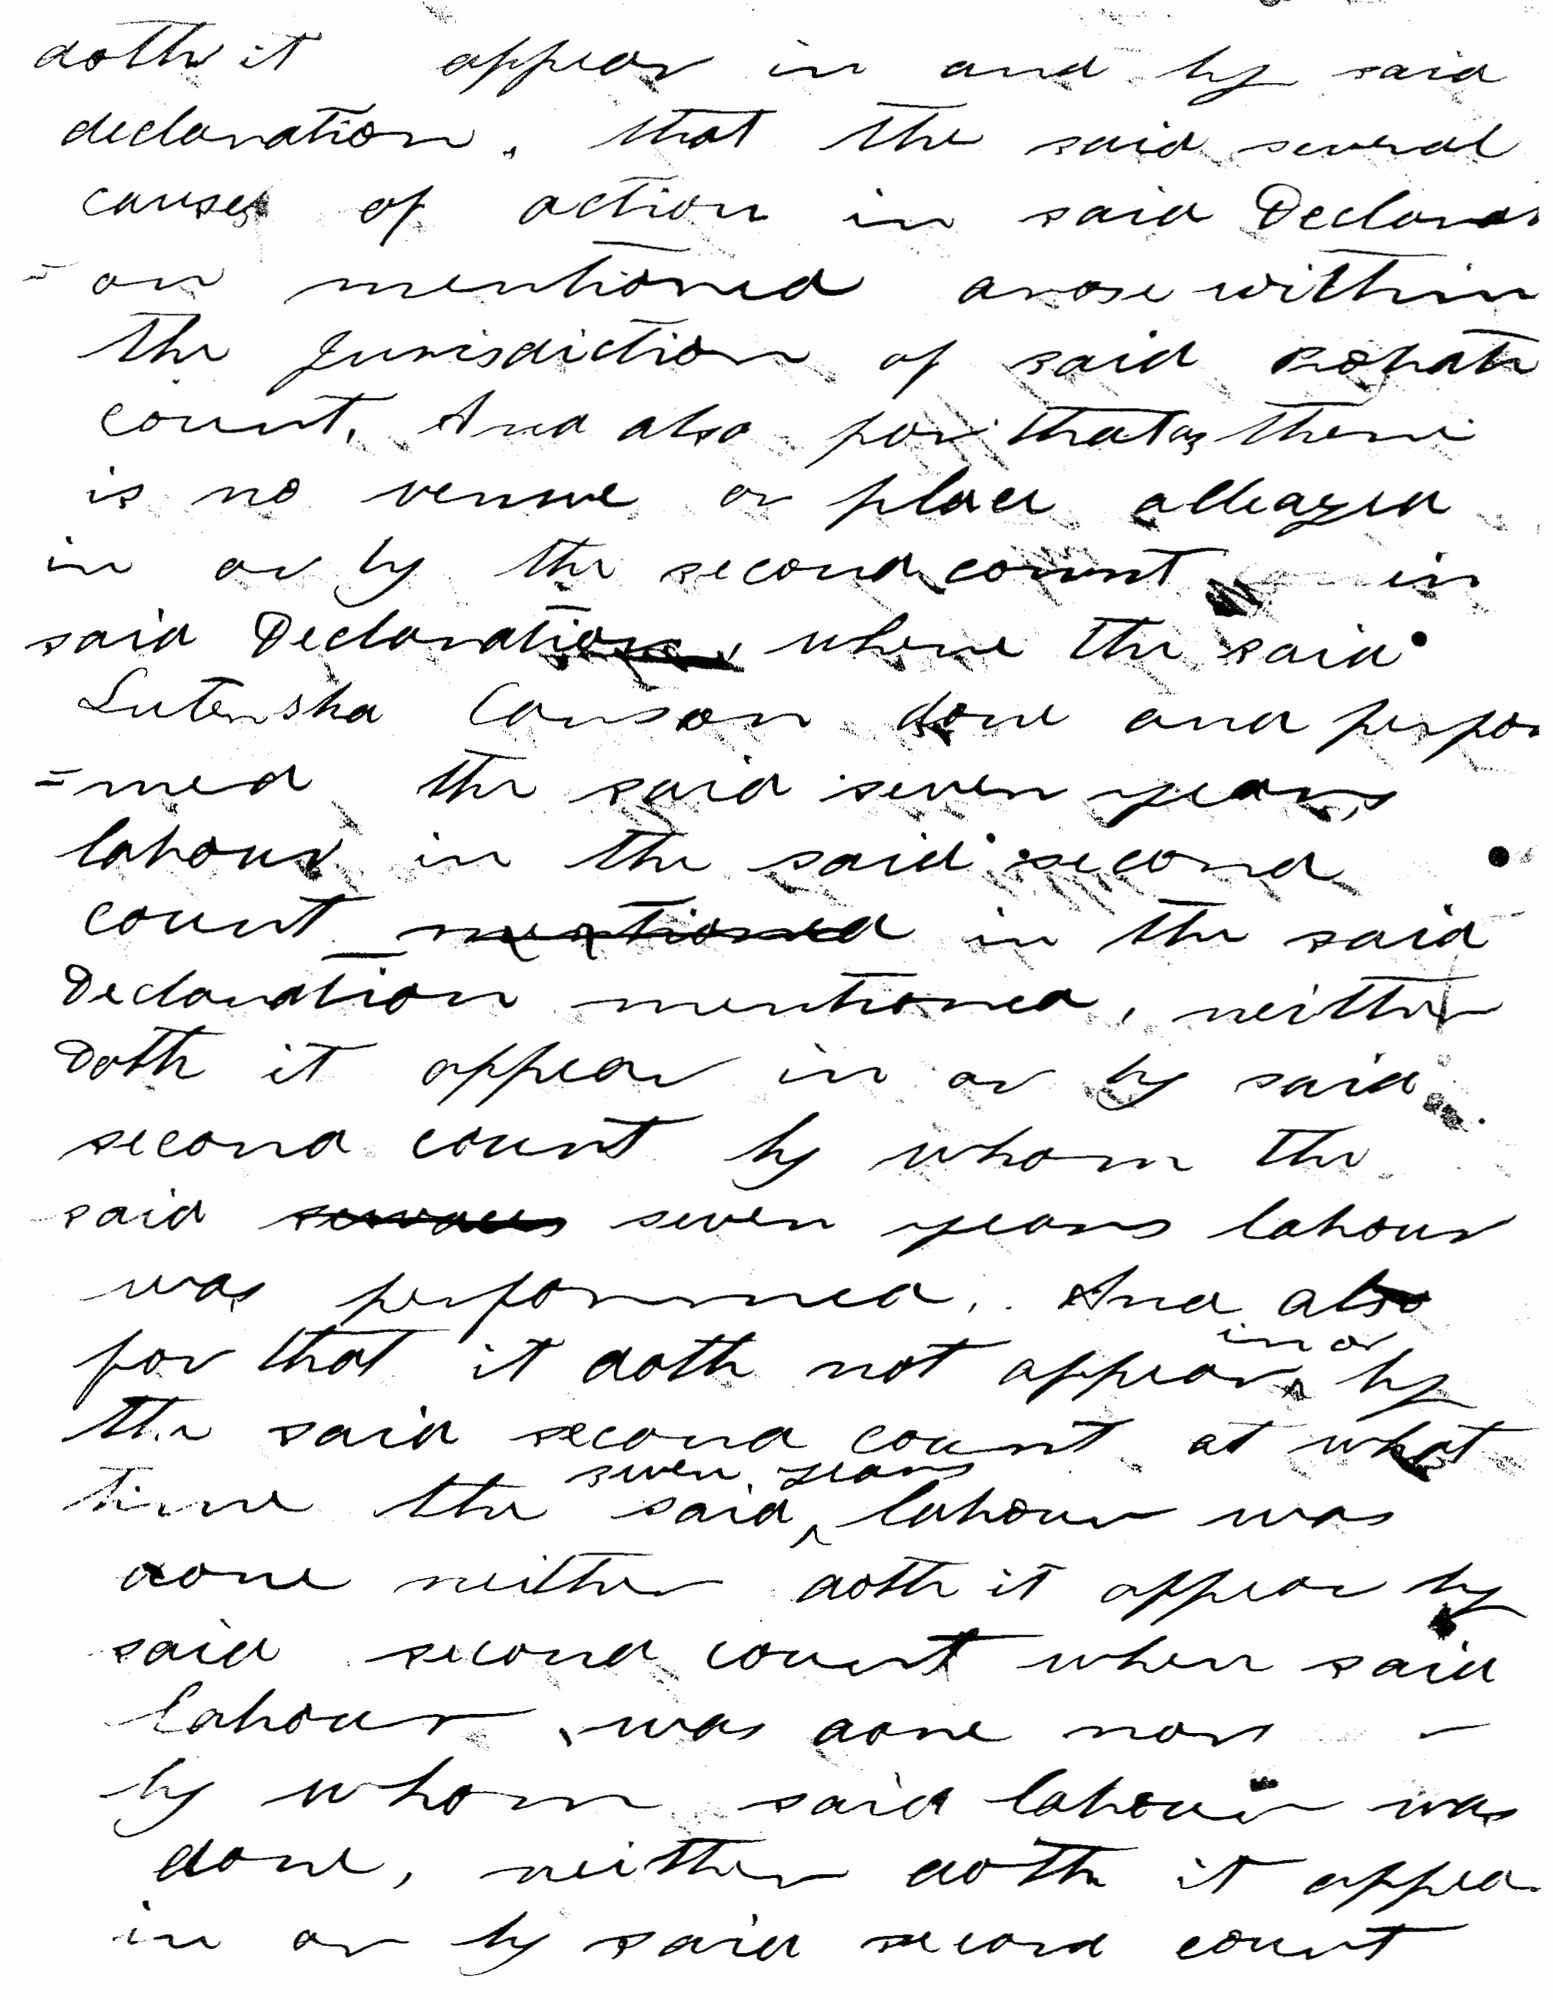 doth it appear in and by said
declaration, that the said several
causes of action in said Declarati
=on mentioned arose within
the Jurisdiction of said Robate
court, And also for that as there
is no venue or place alleaged
in or by the second count in
said Declaration, where the said
Lutensha Conson done and perfor
=med the said seven years
labour in the said second
count mentioned in the said
Declaration mentioned, neither
Doth it appear in or by said
second count by whom the
said services seven years labour
was performed, And also
for that it doth not appear in or by
the said second count at what
time the said seven years labour was
done neither doth it appear by
said second count when said
labour was done nor
by whom said labour was
done, neither doth it appea
in or by said second count